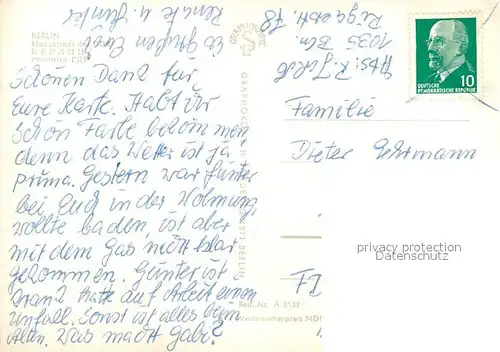 BERLIN
Hauptstadt der
BERLIN
столица ГДР
Schönen Dank für
Eure Karte. Habt Ihr
schön Farbe bekommen
denn das Wetter ist ja
prima. Gestern war Günter
bei Euch in der Wohnung,
wollte baden, ist aber
mit dem Gas nicht klar
gekommen. Günter ist
krank hatte auf Arbeit einen
Unfall. Sonst ist alles beim
Alten. Was macht Gabi?
Es grüßen Euch
Renate u. Günter
Abs: R.
1035 Bln.
DEUTSCHE
DEMOKRATISCHE REPUBLIK
10
Familie
Dieter Gehrmann
privacy protection
Datenschutz
1071 BERLIN
Best.-Nr. A 3139
Verbraucherpreis MDN